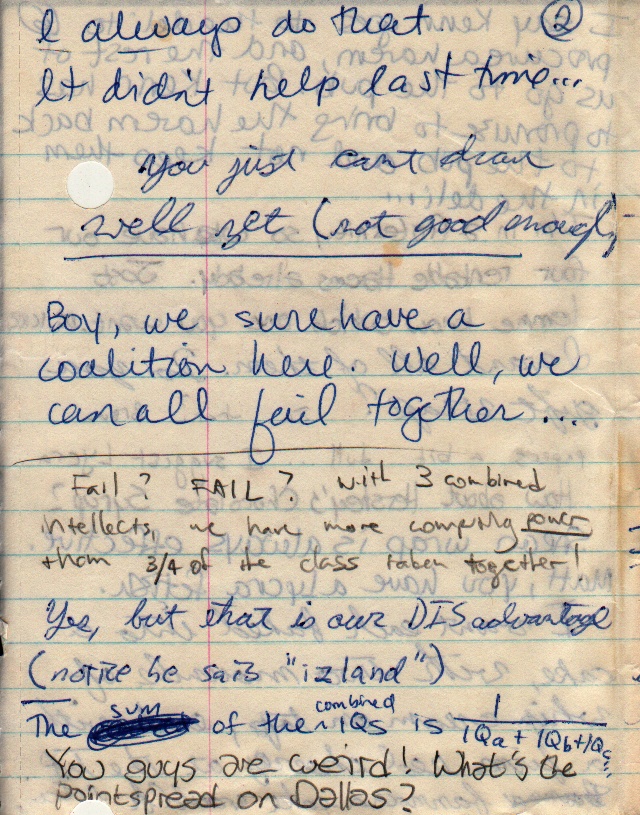 I always do that. ②
It didn't help last time...
You just can't draw
well yet (not good enough)
Boy, we sure have a
coalition here. Well, we
can all fail together...
Fail? FAIL? With 3 combined
intellects, we have more computing power
than 3/4 of the class taken together!
Yes, but that is our DISadvantage
(notice he said "izland")
The sum of the combined IQs is 1 / IQa + IQb + IQc...
You guys are weird! What's the
pointspread on Dallas?